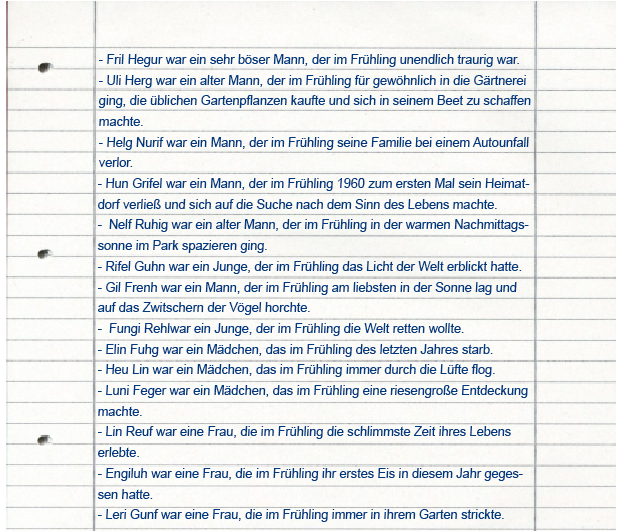 - Fril Hegur war ein sehr böser Mann, der im Frühling unendlich traurig war.
- Uli Herg war ein alter Mann, der im Frühling für gewöhnlich in die Gärtnerei
ging, die üblichen Gartenpflanzen kaufte und sich in seinem Beet zu schaffen
machte.
- Helg Nurif war ein Mann, der im Frühling seine Familie bei einem Autounfall
verlor.
- Hun Grifel war ein Mann, der im Frühling 1960 zum ersten Mal sein Heimat-
dorf verließ und sich auf die Suche nach dem Sinn des Lebens machte.
-  Nelf Ruhig war ein alter Mann, der im Frühling in der warmen Nachmittags-
sonne im Park spazieren ging.
- Rifel Guhn war ein Junge, der im Frühling das Licht der Welt erblickt hatte.
- Gil Frenh war ein Mann, der im Frühling am liebsten in der Sonne lag und
auf das Zwitschern der Vögel horchte.
-  Fungi Rehlwar ein Junge, der im Frühling die Welt retten wollte.
- Elin Fuhg war ein Mädchen, das im Frühling des letzten Jahres starb.
- Heu Lin war ein Mädchen, das im Frühling immer durch die Lüfte flog.
- Luni Feger war ein Mädchen, das im Frühling eine riesengroße Entdeckung
machte.
- Lin Reuf war eine Frau, die im Frühling die schlimmste Zeit ihres Lebens
erlebte.
- Engiluh war eine Frau, die im Frühling ihr erstes Eis in diesem Jahr geges-
sen hatte.
- Leri Gunf war eine Frau, die im Frühling immer in ihrem Garten strickte.